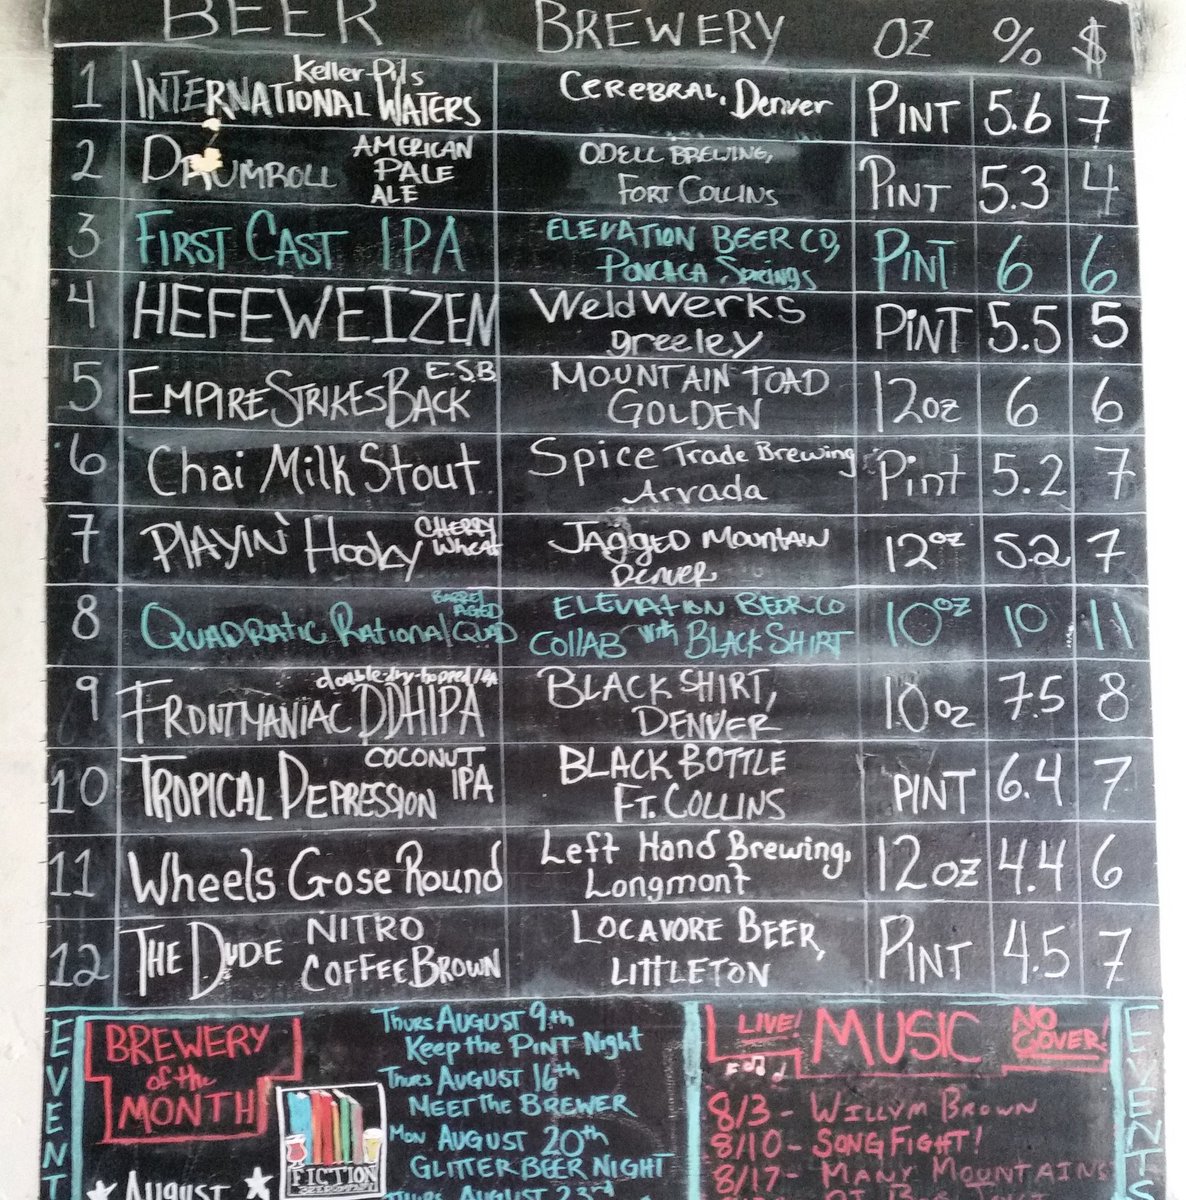 BEER BREWERY OZ % $
1 INTERNATIONAL WATERS Keller-Pils CEREBRAL, Denver PINT 5.6 7
2 DRUMROLL AMERICAN PALE ALE ODELL BREWING, FORT COLLINS PINT 5.3 4
3 FIRST CAST IPA ELEVATION BEER CO, PONCACA SPRINGS PINT 6 6
4 HEFEWEIZEN WeldWerks greeley PINT 5.5 5
5 EMPIRE STRIKES BACK E.S.B. MOUNTAIN TOAD GOLDEN 12oz 6 6
6 Chai Milk Stout Spice Trade Brewing Arvada Pint 5.2 7
7 PLAYIN' HOOKY CHERRY Wheat JAGGED MOUNTAIN DENVER 12oz 5.2 7
8 QUADRATIC RATIONAL BARREL AGED QUAD ELEVATION BEER CO COLLAB with BLACK SHIRT 10oz 10 11
9 FRONTMANIAC DDHIPA double-dry-hopped IPA BLACK SHIRT, DENVER 10oz 7.5 8
10 TROPICAL DEPRESSION COCONUT IPA BLACK BOTTLE FT. COLLINS PINT 6.4 7
11 Wheels Gose Round Left Hand Brewing, Longmont 12oz 4.4 6
12 THE DUDE NITRO COFFEE BROWN LOCAVORE BEER, LITTLETON PINT 4.5 7
EVENT
BREWERY
of the
MONTH
FICTION
August
THURS AUGUST 9th
Keep the PINT Night
THURS AUGUST 16th
MEET the BREWER
MON AUGUST 20th
GLITTER BEER NIGHT
THURS AUGUST 23rd
LIVE! MUSIC NO COVER!
8/3 - WILLYM BROWN
8/10 - SONG FIGHT!
8/17 - MANY MOUNTAINS
EVENTS